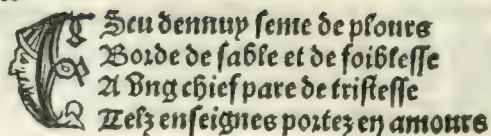 EScu dennuy ſeme de plours
Borde de ſable et de foibleſſe
A Vng chief pare de triſteſſe
Telz enſeignes portez en amours